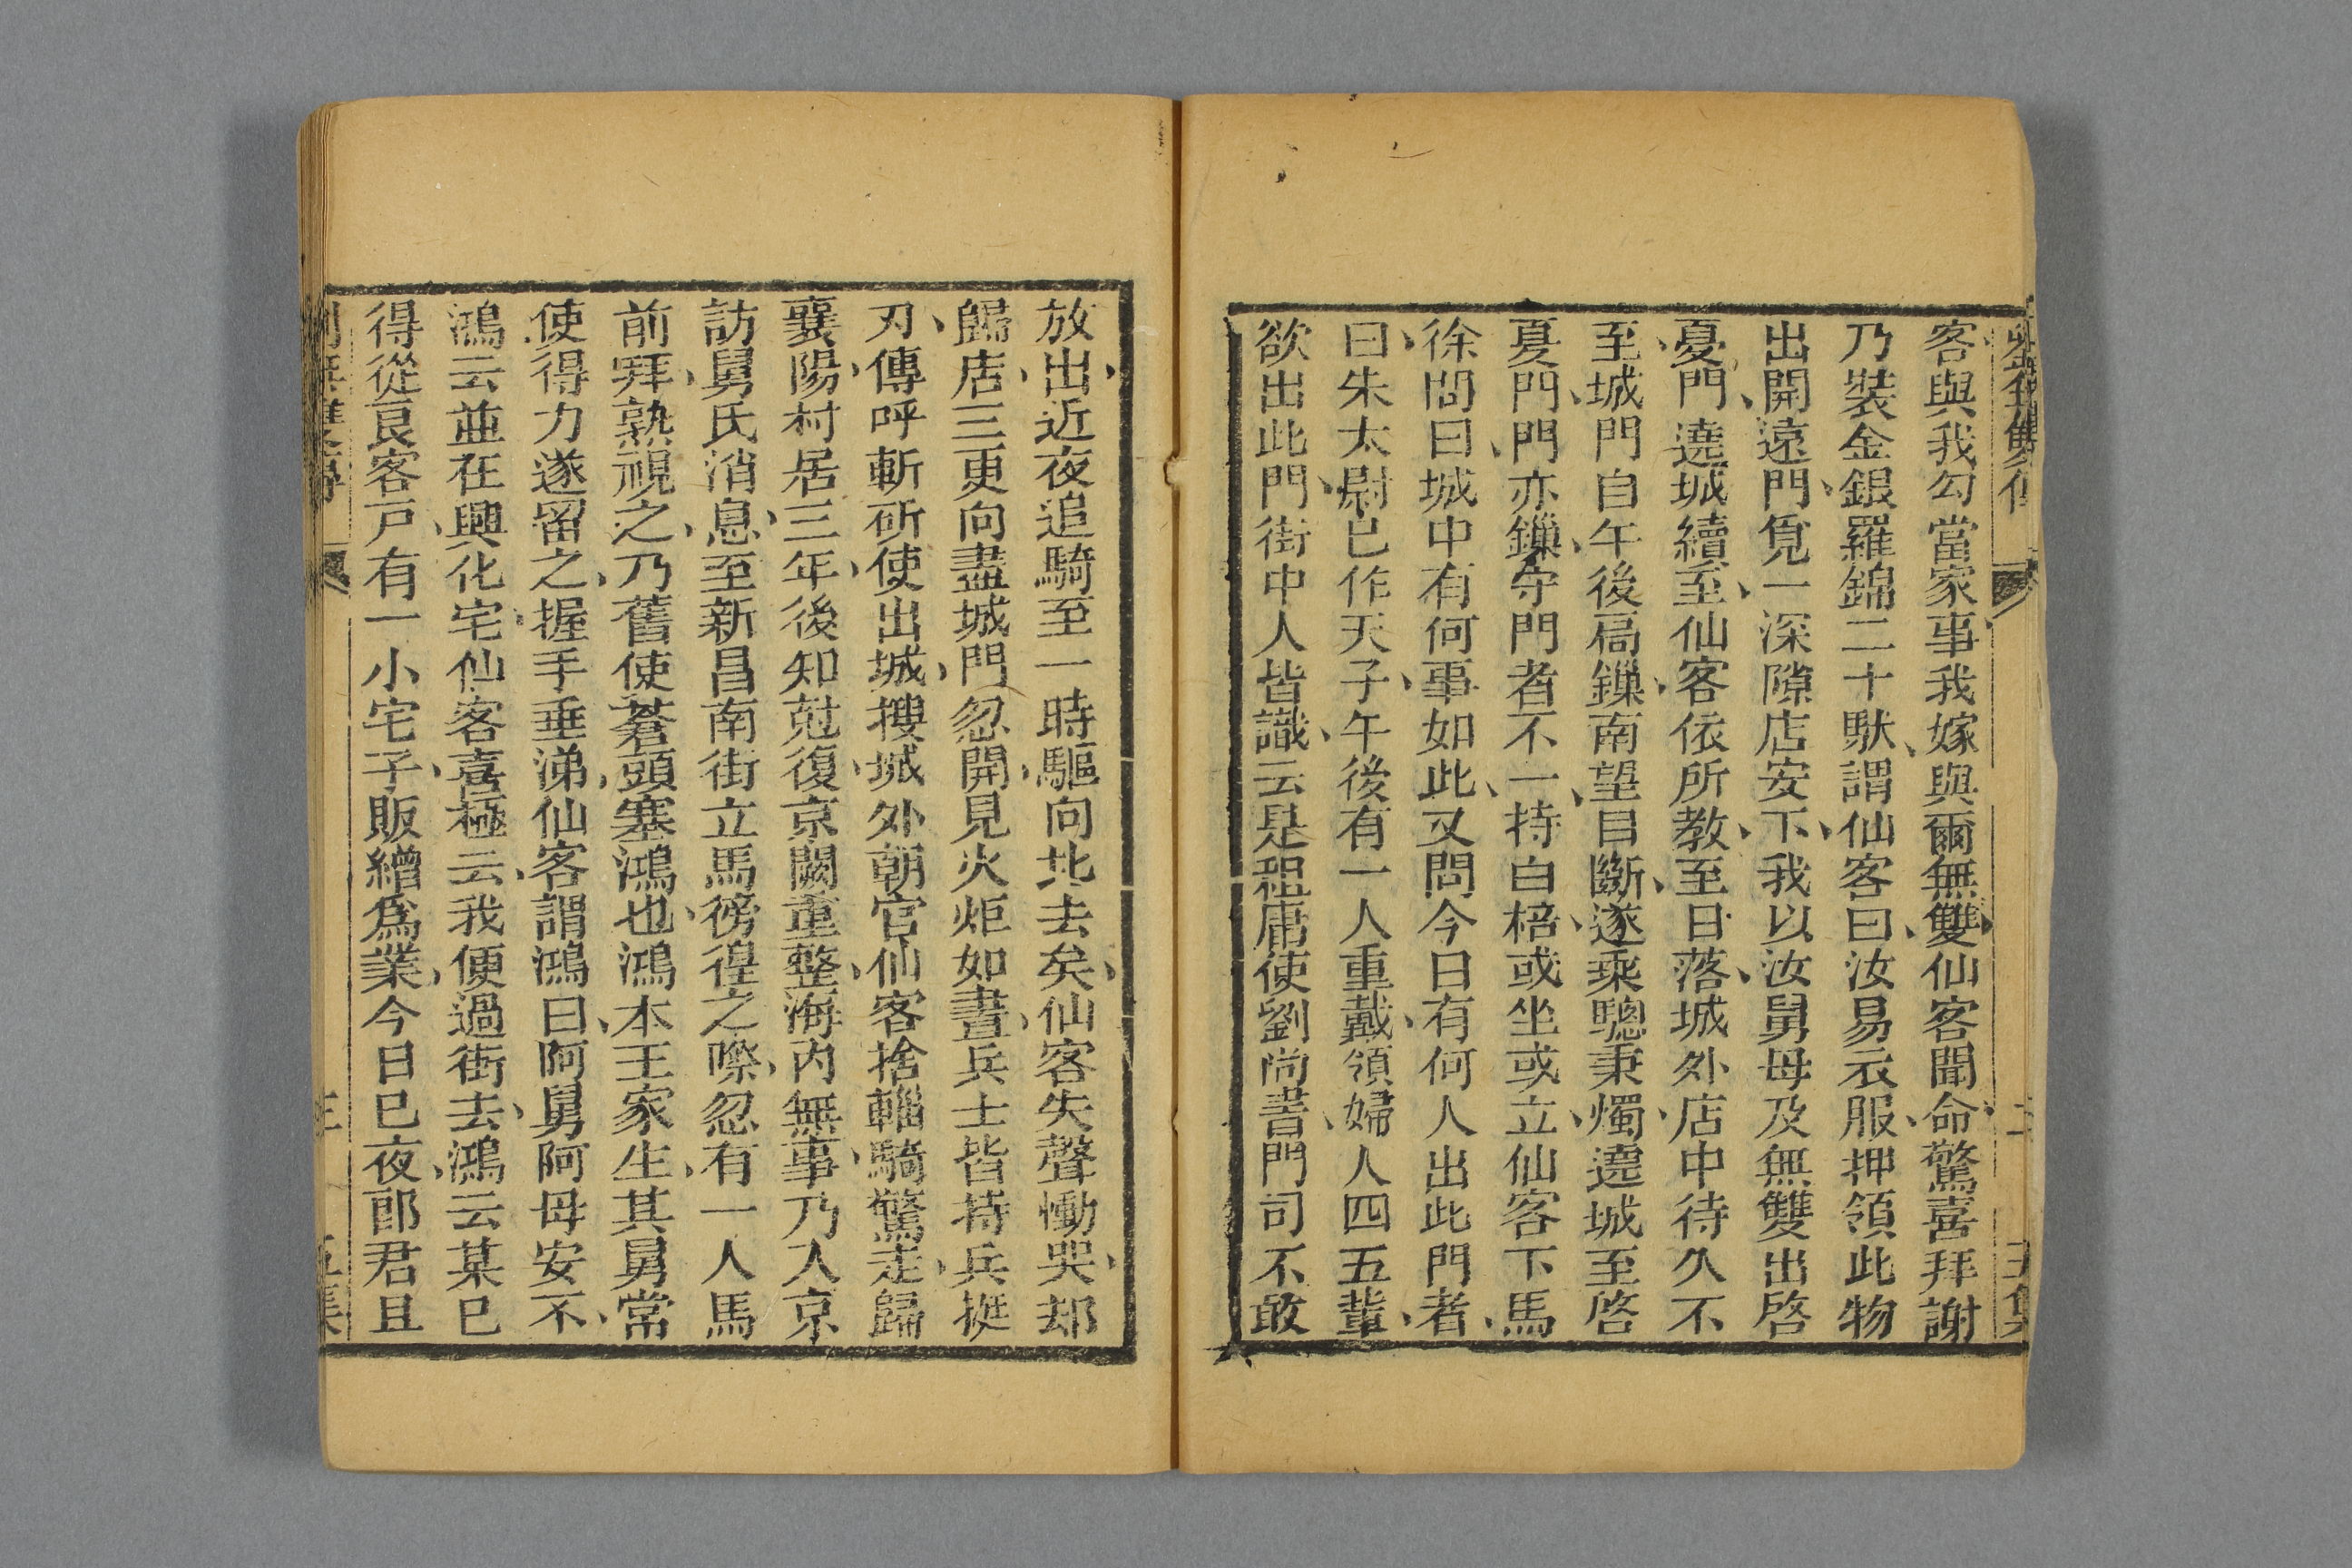 客與我勾當家事我嫁與爾無雙仙客聞命驚喜拜謝
乃裝金銀羅錦二十䭾謂仙客曰汝易衣服押領此物
出開遠門覓一深隙店安下我以汝舅母及無雙出啓
夏門遶城續至仙客依所教至日落城外店中待久不
至城門自午後扄鏁南望目斷遂乘驄秉燭遶城至啓
夏門門亦鏁守門者不一持白棓或坐或立仙客下馬
徐問曰城中有何事如此又問今日有何人出此門者
曰朱太尉已作天子午後有一人重戴領婦人四五輩
欲出此門街中人皆識云是租庸使劉尚書門司不敢
放出近夜追騎至一時驅向北去矣仙客失聲慟哭却
歸店三更向盡城門忽開見火炬如晝兵士皆持兵挺
刃傳呼斬斫使出城搜城外朝官仙客捨輜騎驚走歸
襄陽村居三年後知尅復京闕重整海內無事乃入京
訪舅氏消息至新昌南街立馬徬徨之際忽有一人馬
前拜熟視之乃舊使蒼頭塞鴻也鴻本王家生其舅常
使得力遂留之握手垂涕仙客謂鴻曰阿舅阿母安不
鴻云並在興化宅仙客喜極云我便過街去鴻云某已
得從良客戸有一小宅子販繒爲業今日已夜郎君且